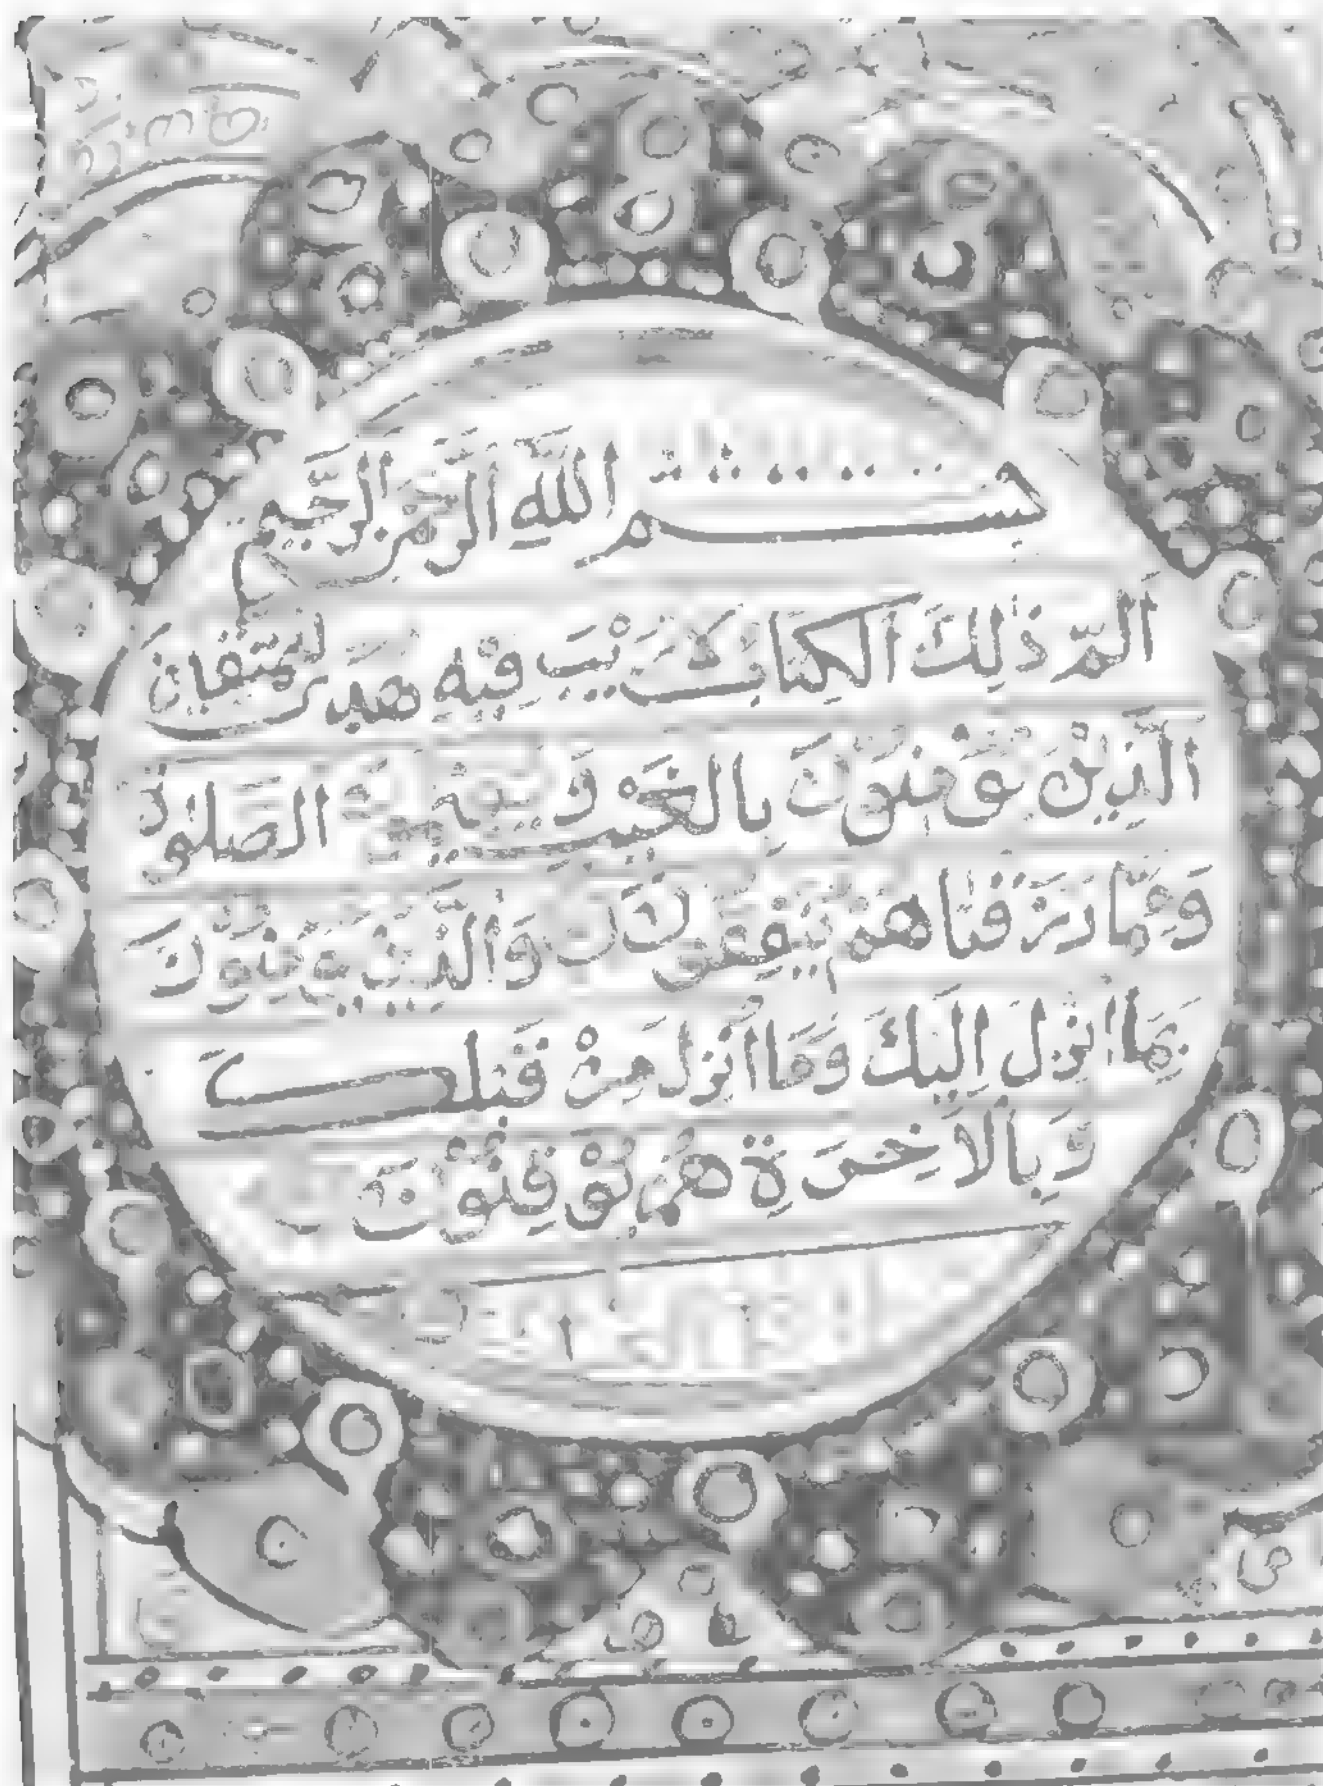 بِسْمِ اللَّهِ الرَّحْمَنِ الرَّحِيمِ
الٓمّ ذَٰلِكَ الْكِتَابُ لَا رَيْبَ فِيهِ هُدًى لِلْمُتَّقِينَ
الَّذِينَ يُؤْمِنُونَ بِالْغَيْبِ وَيُقِيمُونَ الصَّلَوٰةَ
وَمِمَّا رَزَقْنَاهُمْ يُنْفِقُونَ وَالَّذِينَ يُؤْمِنُونَ
بِمَا أُنْزِلَ إِلَيْكَ وَمَا أُنْزِلَ مِنْ قَبْلِكَ
وَبِالْآخِرَةِ هُمْ يُوقِنُونَ